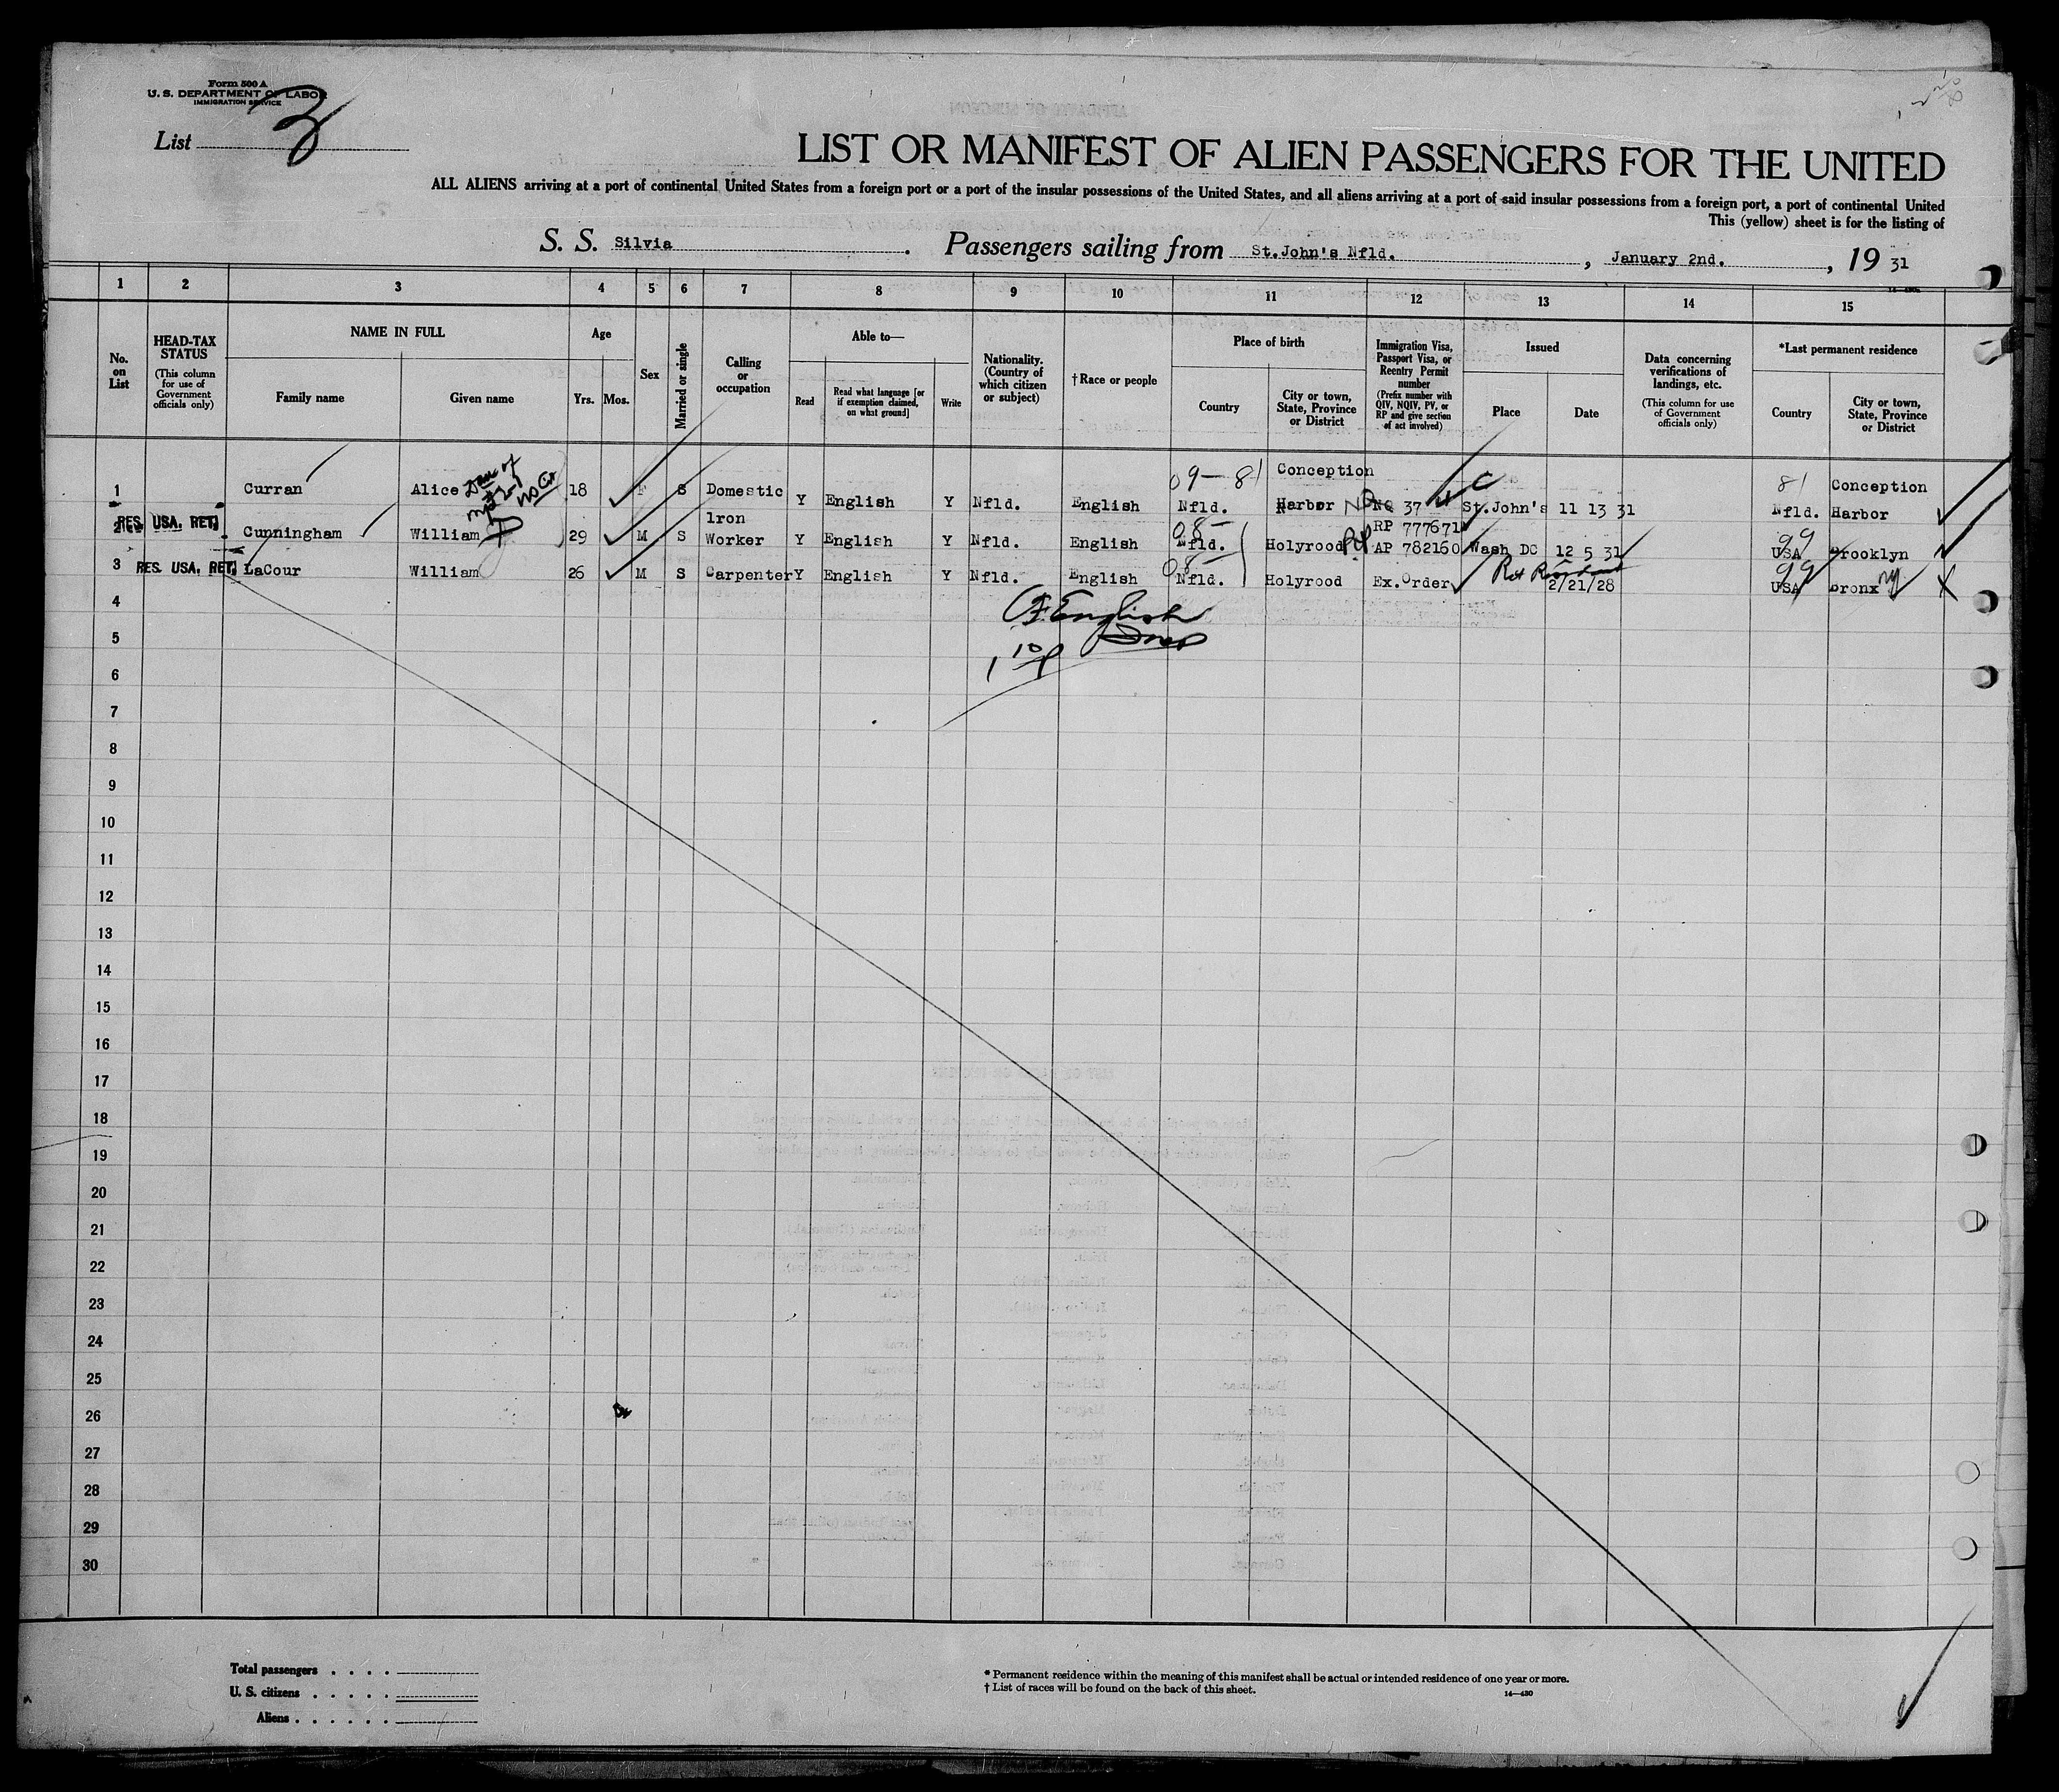 Form 500 A
U. S. DEPARTMENT OF LABOR
IMMIGRATION SERVICE
List 3
LIST OR MANIFEST OF ALIEN PASSENGERS FOR THE UNITED
ALL ALIENS arriving at a port of continental United States from a foreign port or a port of the insular possessions of the United States, and all aliens arriving at a port of said insular possessions from a foreign port, a port of continental United
This (yellow) sheet is for the listing of
S. S. Silvia. Passengers sailing from St.John's Nfld., January 2nd., 19 31
1 2 3 4 5 6 7 8 9 10 11 12 13 14 15
No. on List
HEAD-TAX STATUS
(This column for use of Government officials only)
NAME IN FULL
Family name Given name
Age
Yrs. Mos.
Sex
Married or single
Calling or occupation
Able to—
Read
Read what language [or if exemption claimed, on what ground]
Write
Nationality. (Country of which citizen or subject)
†Race or people
Place of birth
Country
City or town, State, Province or District
Immigration Visa, Passport Visa, or Reentry Permit number
(Prefix number with QIV, NQIV, PV, or RP and give section of act involved)
Issued
Place Date
Data concerning verifications of landings, etc.
(This column for use of Government officials only)
*Last permanent residence
Country
City or town, State, Province or District
1 Curran Alice 18 F S Domestic Y English Y Nfld. English 09-81 Nfld. Conception Harbor NQ 37 St.John's 11 13 31 81 Nfld. Conception Harbor
2 RES. USA. RET. Cunningham William 29 M S Iron Worker Y English Y Nfld. English 08- Nfld. Holyrood RP 777671 AP 782160 Wash DC 12 5 31 99 USA Brooklyn
3 RES. USA. RET. LaCour William 26 M S Carpenter Y English Y Nfld. English 08- Nfld. Holyrood Ex.Order 2/21/28 99 USA Bronx NY
English
4
5
6
7
8
9
10
11
12
13
14
15
16
17
18
19
20
21
22
23
24
25
26
27
28
29
30
Total passengers . . . .
U. S. citizens . . . . .
Aliens . . . . . .
* Permanent residence within the meaning of this manifest shall be actual or intended residence of one year or more.
† List of races will be found on the back of this sheet.
14—430